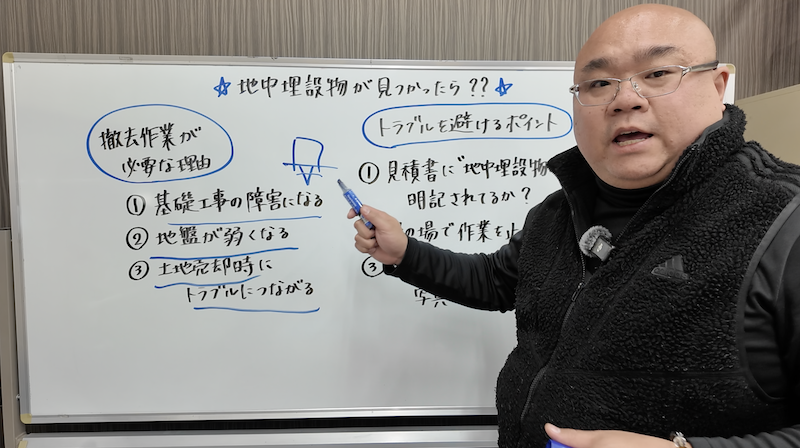 ☆地中埋設物が見つかったら??☆
撤去作業が
必要な理由
① 基礎工事の障害になる
② 地盤が弱くなる
③ 土地売却時に
トラブルにつながる
トラブルを避けるポイント
① 見積書に"地中埋設物
明記されてるか?
の場で作業を止
③
写真
adidas